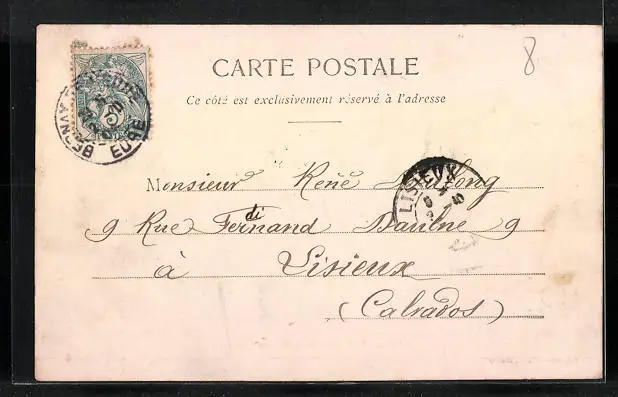 8
CARTE POSTALE
Ce côté est exclusivement réservé à l'adresse
BERNAY
EURE
5
LISIEUX
Monsieur René
9 Rue Fernand di Daulne 9
à Lisieux
(Calvados)